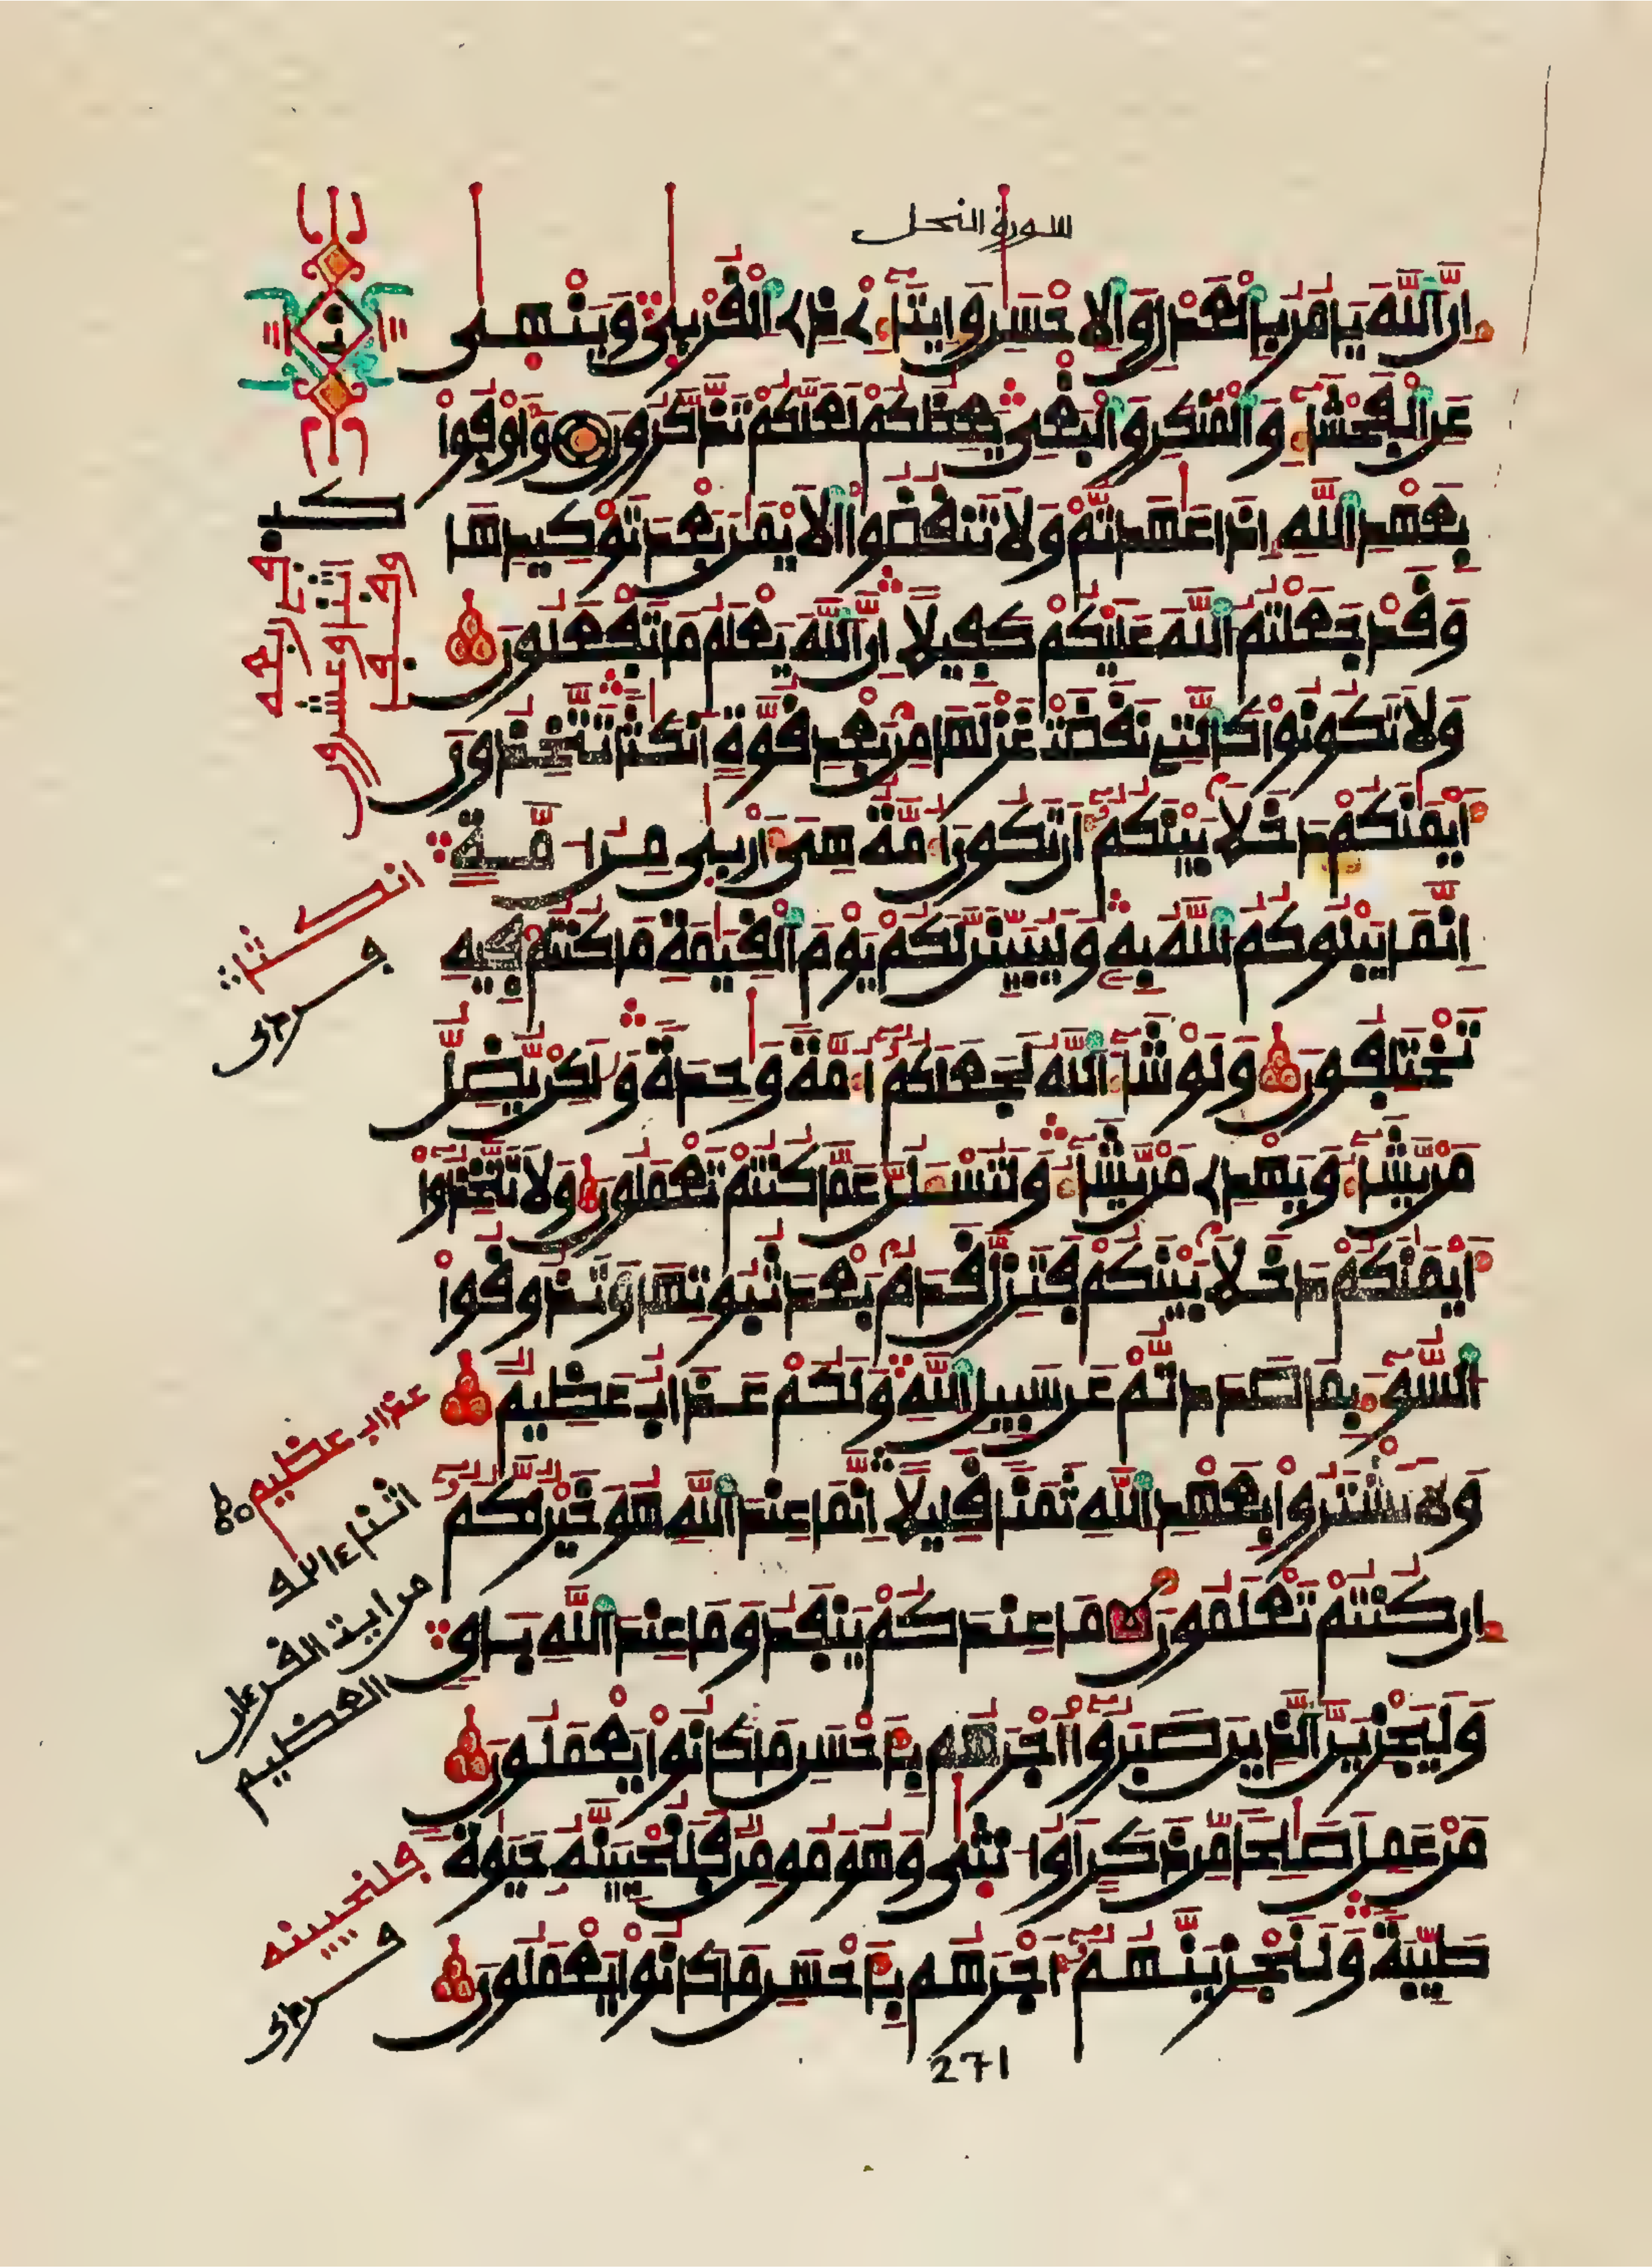 سورة النحل
إن الله يأمر بالعدل والإحسن وإيتاء ذي القربى وينهى
عن الفحشاء والمنكر والبغي يعظكم لعلكم تذكرون وأوفوا
بعهد الله إذا عهدتم ولا تنقضوا الأيمن بعد توكيدها
وقد جعلتم الله عليكم كفيلا إن الله يعلم ما تفعلون
ولا تكونوا كالتي نقضت غزلها من بعد قوة أنكثا تتخذون
أيمنكم دخلا بينكم أن تكون أمة هي أربى من أمة
إنما يبلوكم الله به وليبينن لكم يوم القيمة ما كنتم فيه
تختلفون ولو شاء الله لجعلكم أمة وحدة ولكن يضل
من يشاء ويهدي من يشاء ولتسئلن عما كنتم تعملون ولا تتخذوا
أيمنكم دخلا بينكم فتزل قدم بعد ثبوتها وتذوقوا
السوء بما صددتم عن سبيل الله ولكم عذاب عظيم
ولا تشتروا بعهد الله ثمنا قليلا إنما عند الله هو خير لكم
إن كنتم تعلمون ما عندكم ينفد وما عند الله باق
وليجزين الذين صبروا أجرهم بأحسن ما كانوا يعملون
من عمل صلحا من ذكر أو أنثى وهو مومن فلنحيينه حيوة
طيبة ولنجزينهم أجرهم بأحسن ما كانوا يعملون
271
انكثا
عذاب عظيم
من اية القرءان
العظيم
فلنحيينه